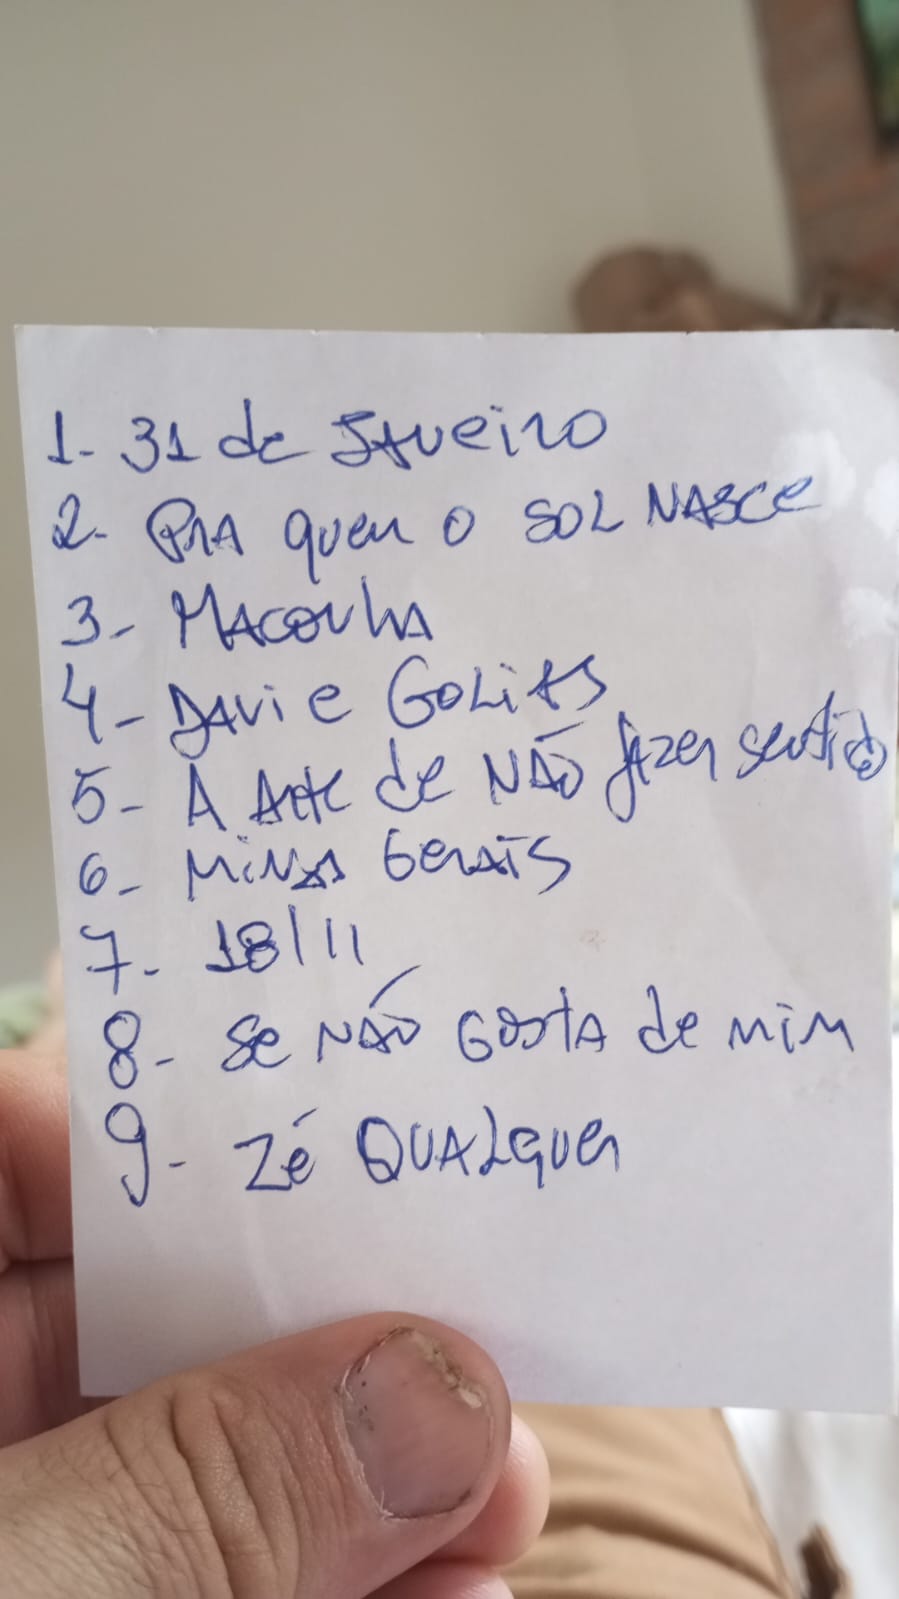 1- 31 de Janeiro
2- Pra quem o sol NASce
3- Maconha
4- Davi e Golias
5- A Arte de Não fazer sentido
6- Minas Gerais
7- 18/11
8- Se Não Gosta de mim
9- Zé Qualquer